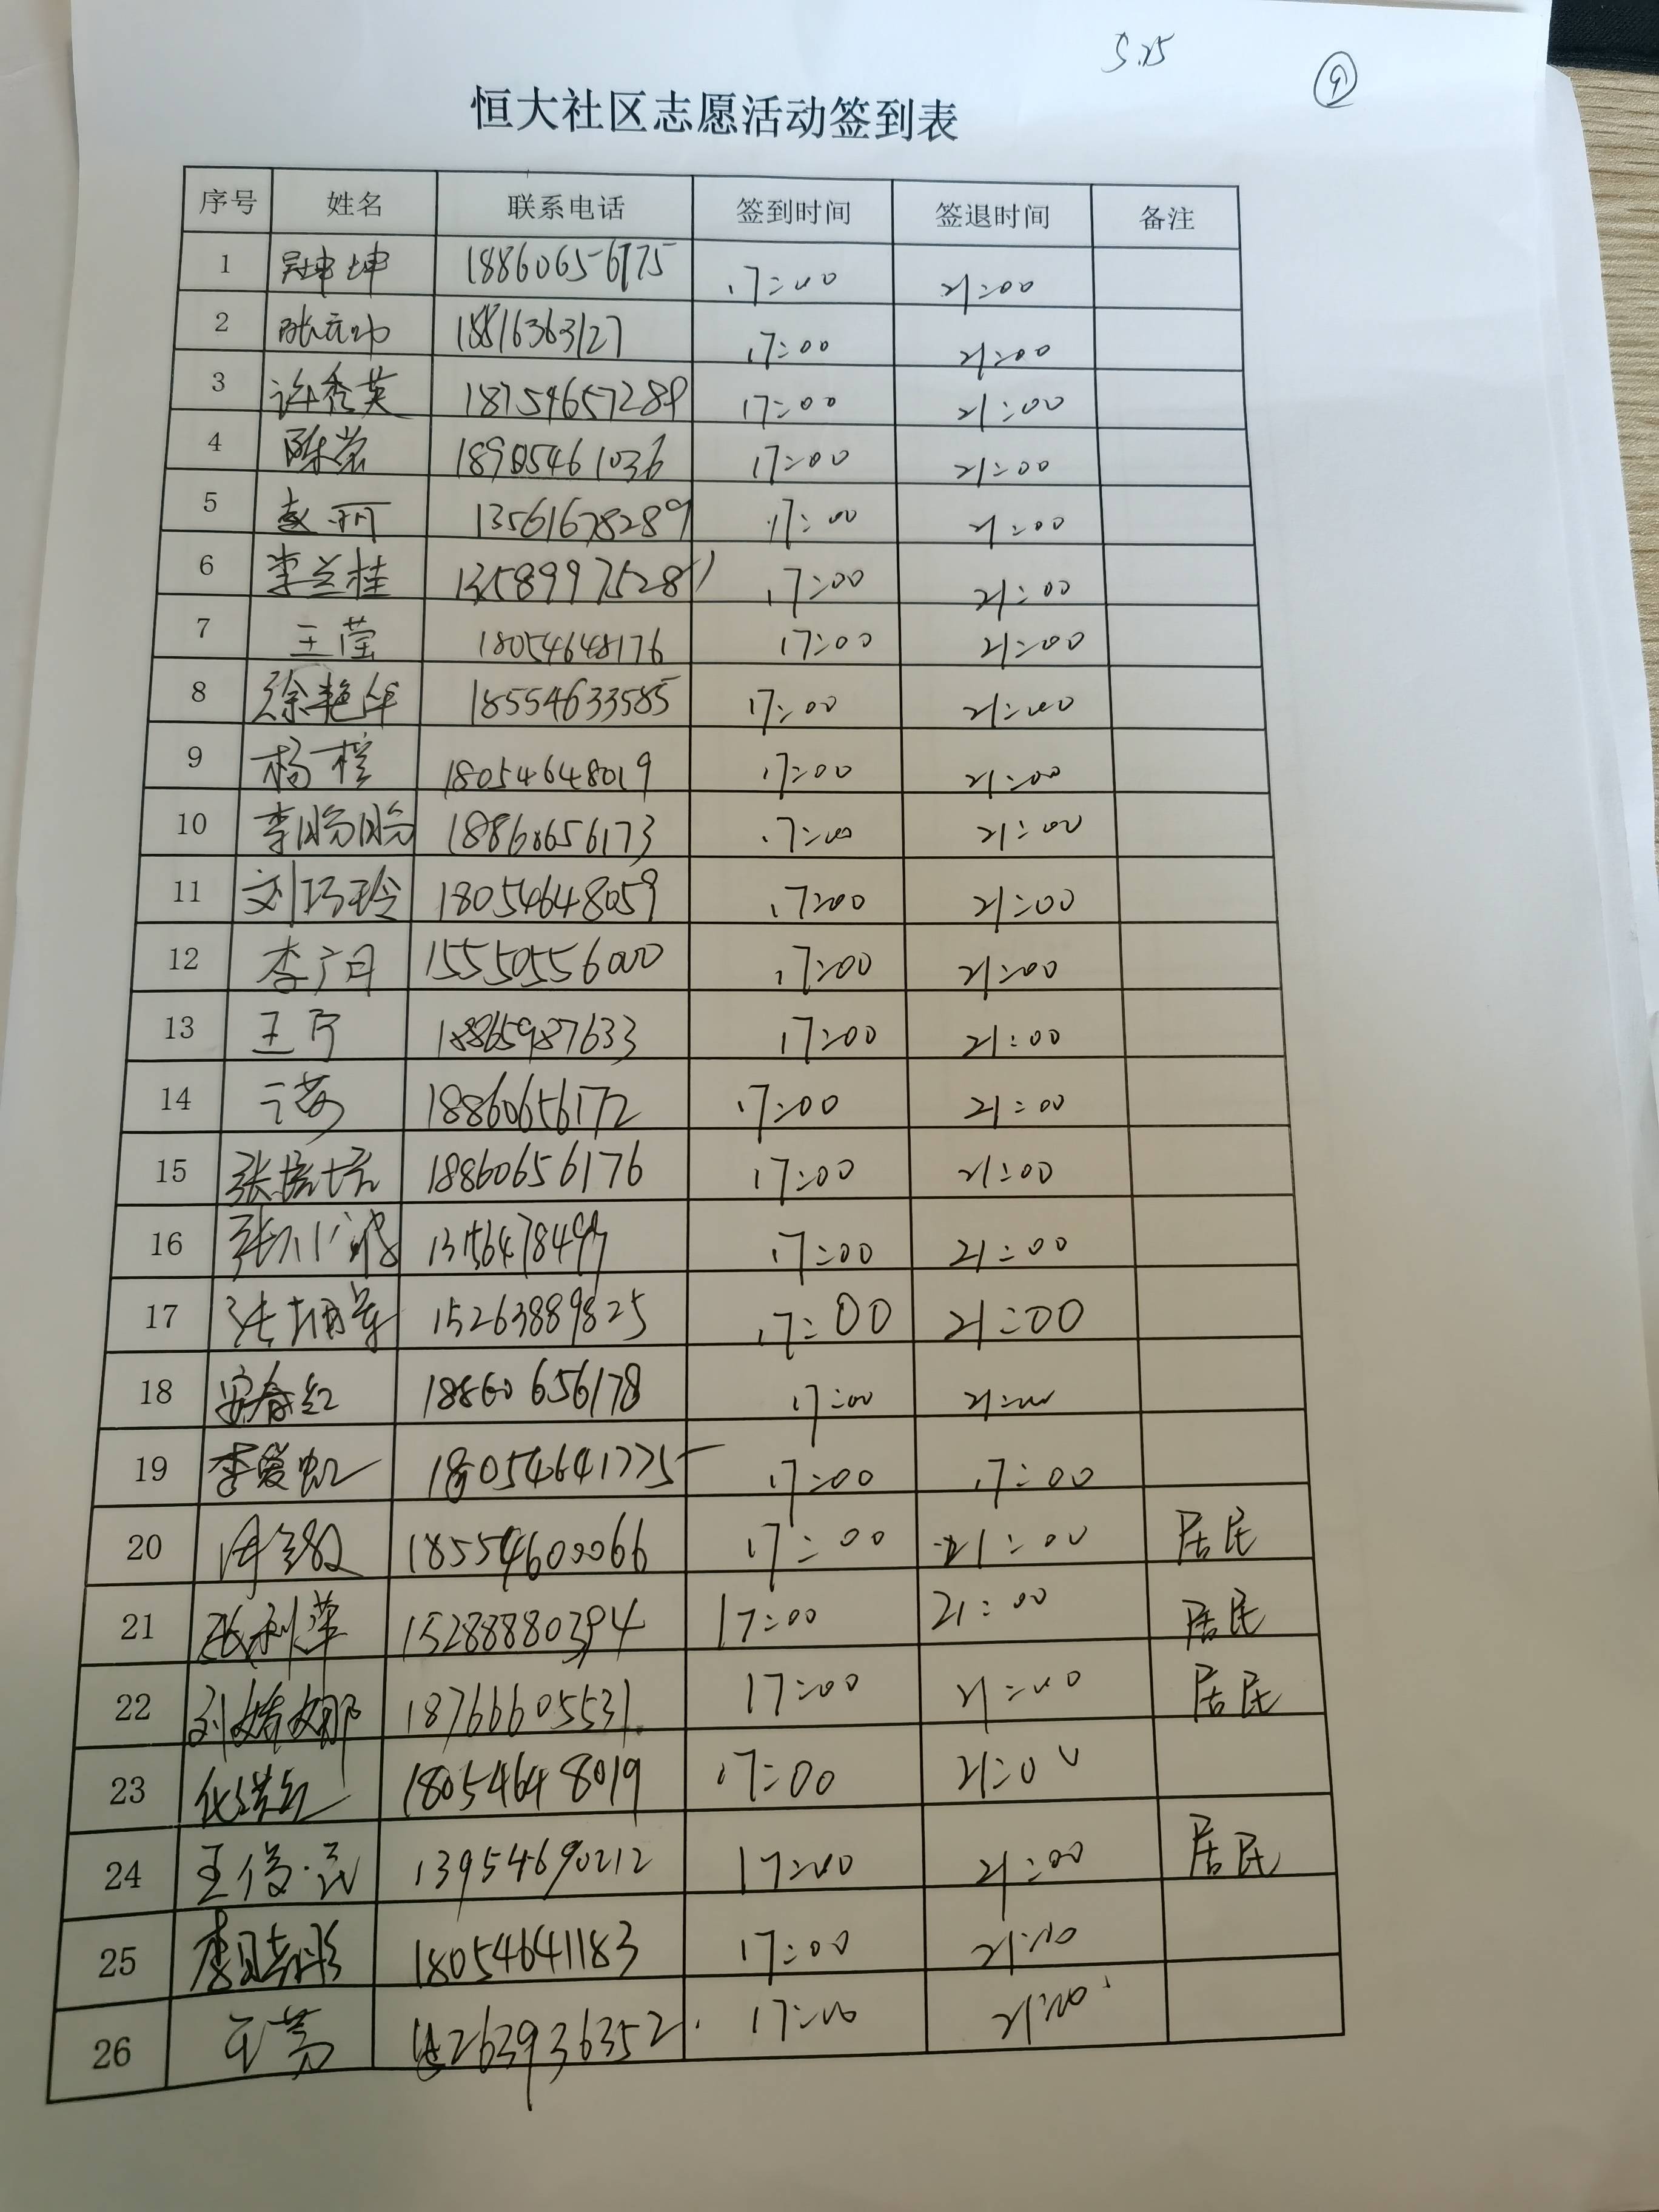 5.25
⑨
恒大社区志愿活动签到表
序号 姓名 联系电话 签到时间 签退时间 备注
1 吴坤坤 18860656175 17:00 21:00
2 17:00 21:00
3 许秀英 18754657289 17:00 21:00
4 陈荣 18905461036 17:00 21:00
5 赵丽 13561678289 17:00 21:00
6 李兰桂 13589975281 17:00 21:00
7 王莹 18054648176 17:00 21:00
8 徐艳华 18554633585 17:00 21:00
9 杨檬 18054648019 17:00 21:00
10 李盼盼 18860656173 17:00 21:00
11 刘巧玲 18054648059 17:00 21:00
12 李广月 15550556000 17:00 21:00
13 王宁 18865987633 17:00 21:00
14 18860656172 17:00 21:00
15 张培培 18860656176 17:00 21:00
16 17:00 21:00
17 15263889825 17:00 21:00
18 安春红 18860656178 17:00 21:00
19 李爱虹 18054641775 17:00 17:00
20 18554600066 17:00 21:00 居民
21 张利萍 15288880394 17:00 21:00 居民
22 刘婧娜 18766605531 17:00 21:00 居民
23 18054648019 17:00 21:00
24 王俊民 13954690212 17:00 21:00 居民
25 李晓彤 18054641183 17:00 21:00
26 王芳 17:00 21:00